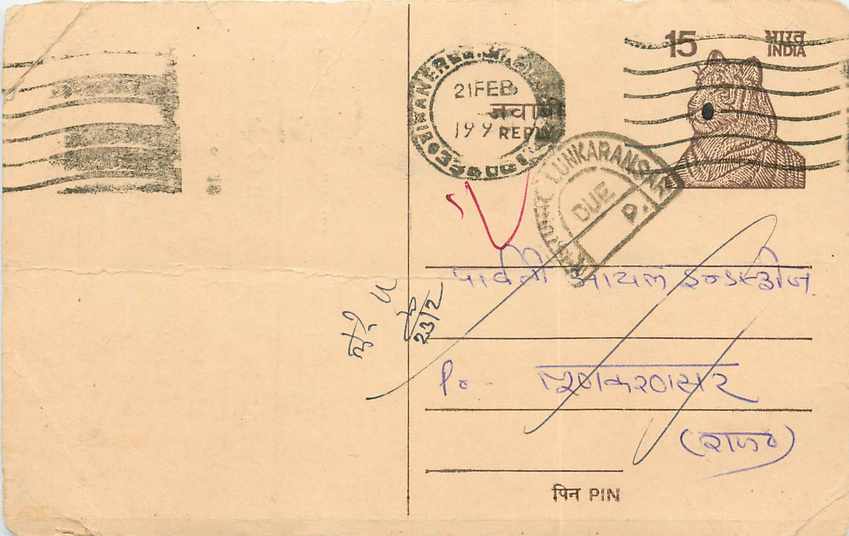 15 भारत
INDIA
21 FEB
199
जवाबी
REPLY
LUNKARANSAR
DUE
P.
पार्वती आयल इन्डस्ट्रीज
Po - लूणकरणसर
(राज०)
23/2
पिन PIN